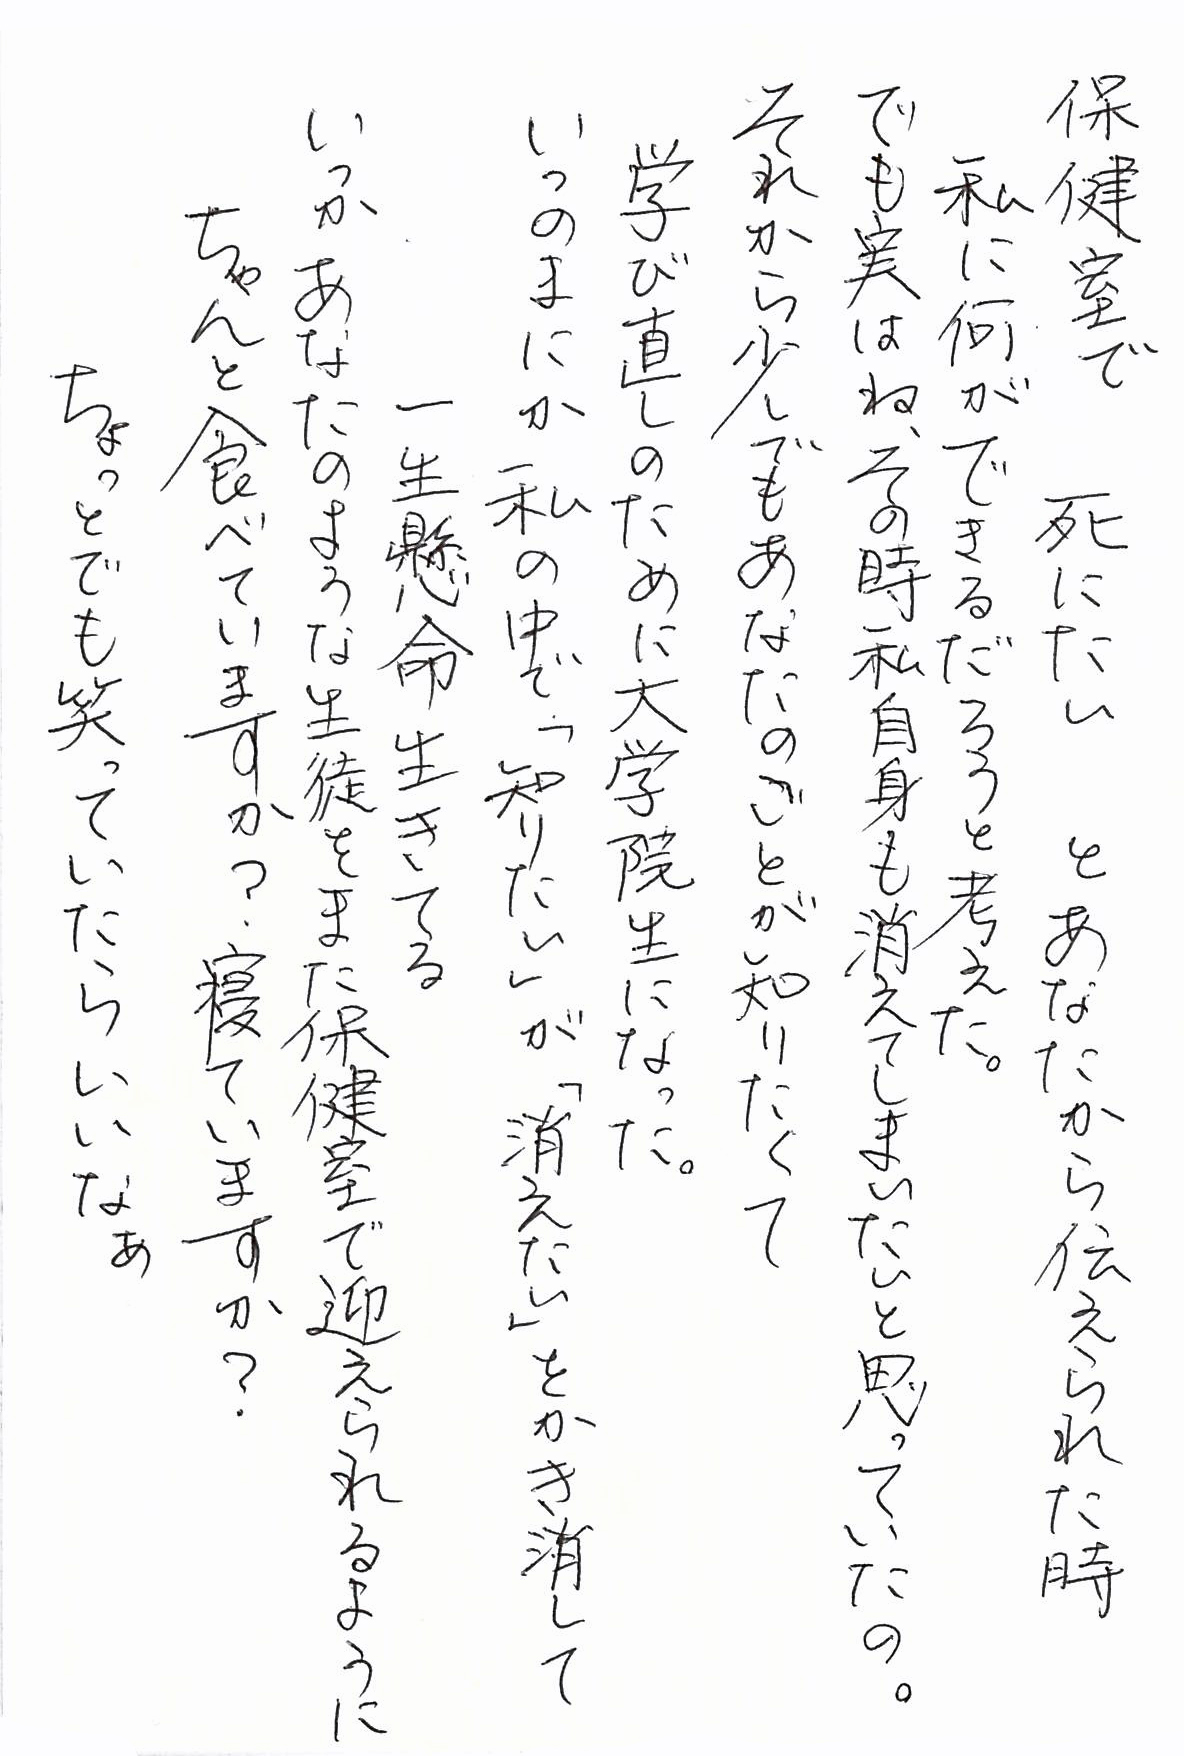 保健室で　死にたい　とあなたから伝えられた時
私に何ができるだろうと考えた。
でも実はね、その時私自身も消えてしまいたいと思っていたの。
それから少しでもあなたのことが知りたくて
学び直しのために大学院生になった。
いつのまにか私の中で「知りたい」が「消えたい」をかき消して
一生懸命生きてる
いつかあなたのような生徒をまた保健室で迎えられるように
ちゃんと食べていますか？寝ていますか？
ちょっとでも笑っていたらいいなぁ